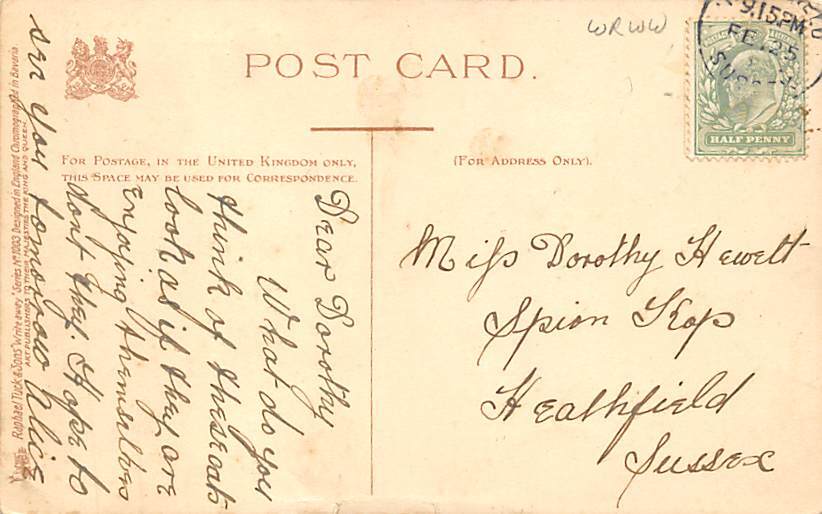 WRWW
POST CARD.
9.15PM
FE 25
HALF PENNY
FOR POSTAGE, IN THE UNITED KINGDOM ONLY,
THIS SPACE MAY BE USED FOR CORRESPONDENCE.
(FOR ADDRESS ONLY).
Dear Dorothy
What do you
think of these cats
look as if they are
enjoying themselves
dont they. Hope to
see you tomorrow Alice
Miss Dorothy Hewett
Spion Kop
Heathfield
Sussex
Raphael Tuck & Sons' "Write away" Series No 1003 Designed in England Chromographed in Bavaria
ART PUBLISHERS TO THEIR MAJESTIES THE KING AND QUEEN.